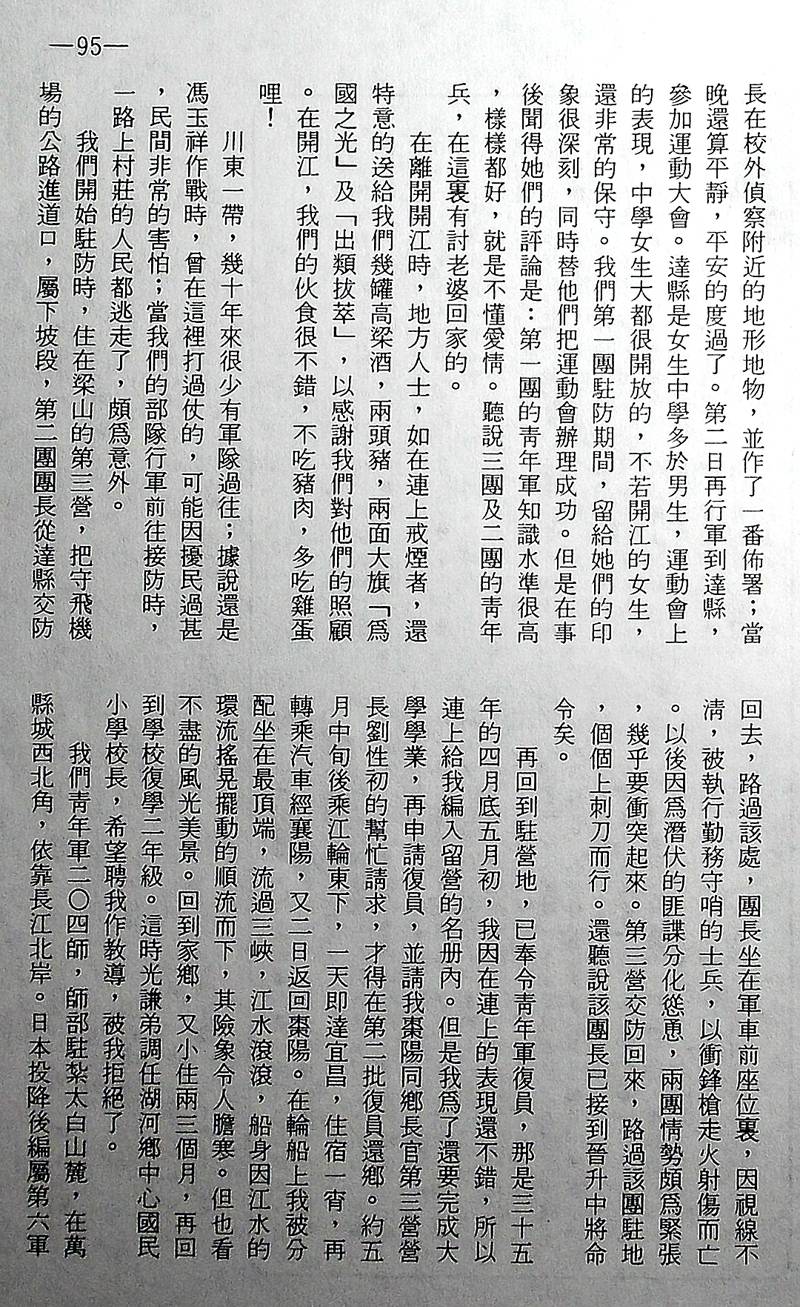 —95—
長在校外偵察附近的地形地物，並作了一番佈署；當
晚還算平靜，平安的度過了。第二日再行軍到達縣，
參加運動大會。達縣是女生中學多於男生，運動會上
的表現，中學女生大都很開放的，不若開江的女生，
還非常的保守。我們第一團駐防期間，留給她們的印
象很深刻，同時替他們把運動會辦理成功。但是在事
後聞得她們的評論是：第一團的青年軍知識水準很高
，樣樣都好，就是不懂愛情。聽說三團及二團的青年
兵，在這裏有討老婆回家的。
在離開開江時，地方人士，如在連上戒煙者，還
特意的送給我們幾罐高梁酒，兩頭豬，兩面大旗「爲
國之光」及「出類拔萃」，以感謝我們對他們的照顧
。在開江，我們的伙食很不錯，不吃豬肉，多吃雞蛋
哩！
川東一帶，幾十年來很少有軍隊過往；據說還是
馮玉祥作戰時，曾在這裡打過仗的，可能因擾民過甚
，民間非常的害怕；當我們的部隊行軍前往接防時，
一路上村莊的人民都逃走了，頗爲意外。
我們開始駐防時，住在梁山的第三營，把守飛機
場的公路進道口，屬下坡段，第二團團長從達縣交防
回去，路過該處，團長坐在軍車前座位裏，因視線不
清，被執行勤務守哨的士兵，以衝鋒槍走火射傷而亡
。以後因爲潛伏的匪諜分化慫恿，兩團情勢頗爲緊張
，幾乎要衝突起來。第三營交防回來，路過該團駐地
，個個上刺刀而行。還聽說該團長已接到晉升中將命
令矣。
再回到駐營地，已奉令青年軍復員，那是三十五
年的四月底五月初，我因在連上的表現還不錯，所以
連上給我編入留營的名册內。但是我爲了還要完成大
學學業，再申請復員，並請我棗陽同鄉長官第三營營
長劉性初的幫忙請求，才得在第二批復員還鄉。約五
月中旬後乘江輪東下，一天即達宜昌，住宿一宵，再
轉乘汽車經襄陽，又二日返回棗陽。在輪船上我被分
配坐在最頂端，流過三峽，江水滾滾，船身因江水的
環流搖晃擺動的順流而下，其險象令人膽寒。但也看
不盡的風光美景。回到家鄉，又小住兩三個月，再回
到學校復學二年級。這時光謙弟調任湖河鄉中心國民
小學校長，希望聘我作教導，被我拒絕了。
我們青年軍二〇四師，師部駐紮太白山麓，在萬
縣城西北角，依靠長江北岸。日本投降後編屬第六軍